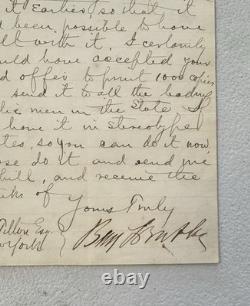 it earlier, so that it
been possible to have
with it, I certainly
have accepted your
offer to print 1000 copies
send it to all the leading
men in the State. I
have it in stereotyped
so you can do it now
do it and send me
bill, and receive the
of
Yours Truly
Dillon Esq.
Benj F Butler